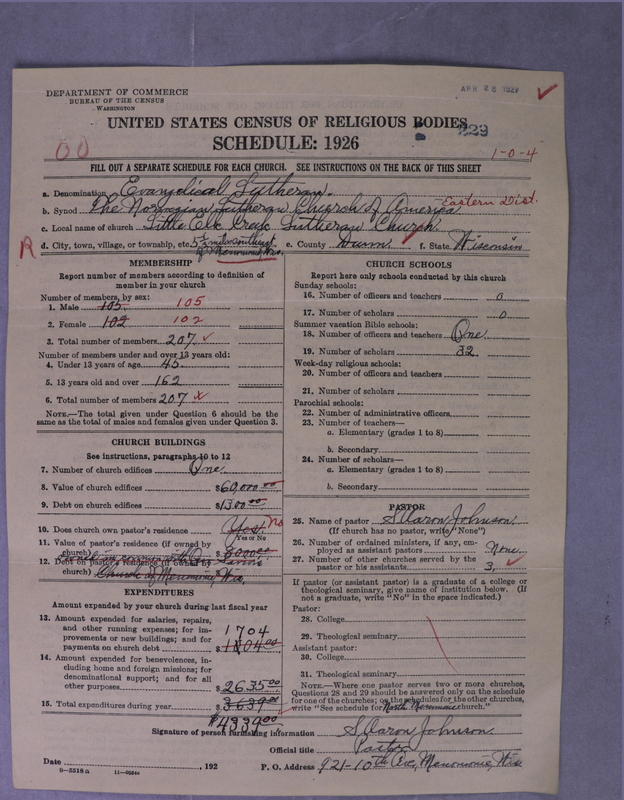 DEPARTMENT OF COMMERCE
BUREAU OF THE CENSUS
WASHINGTON
APR 28 1927
UNITED STATES CENSUS OF RELIGIOUS BODIES
229
SCHEDULE: 1926
1-0-4
FILL OUT A SEPARATE SCHEDULE FOR EACH CHURCH. SEE INSTRUCTIONS ON THE BACK OF THIS SHEET
a. Denomination Evangelical Lutheran.
b. Synod The Norwegian Lutheran Church of America Eastern Dist.
c. Local name of church Little Elk Creek Lutheran Church
R d. City, town, village, or township, etc. 5½ miles southeast of Menomonie, Wis. e. County Dunn f. State Wisconsin
MEMBERSHIP
Report number of members according to definition of
member in your church
Number of members by sex:
1. Male 105 105
2. Female 102 102
3. Total number of members 207
Number of members under and over 13 years old:
4. Under 13 years of age 45
5. 13 years old and over 162
6. Total number of members 207
NOTE.—The total given under Question 6 should be the
same as the total of males and females given under Question 3.
CHURCH BUILDINGS
See instructions, paragraphs 10 to 12
7. Number of church edifices One
8. Value of church edifices $60,000.00
9. Debt on church edifices $1300.00
10. Does church own pastor's residence Yes No
Yes or No
11. Value of pastor's residence (if owned by
church) $8000.00
12. Debt on pastor's residence (if owned by
church) Church of Menomonie, Wis.
EXPENDITURES
Amount expended by your church during last fiscal year
13. Amount expended for salaries, repairs,
and other running expenses; for im-
provements or new buildings; and for
payments on church debt 1704 $1804.00
14. Amount expended for benevolences, in-
cluding home and foreign missions; for
denominational support; and for all
other purposes $2635.00
15. Total expenditures during year $3639.00
$4339.00
CHURCH SCHOOLS
Report here only schools conducted by this church
Sunday schools:
16. Number of officers and teachers 0
17. Number of scholars 0
Summer vacation Bible schools:
18. Number of officers and teachers One
19. Number of scholars 32
Week-day religious schools:
20. Number of officers and teachers
21. Number of scholars
Parochial schools:
22. Number of administrative officers
23. Number of teachers—
a. Elementary (grades 1 to 8)
b. Secondary
24. Number of scholars—
a. Elementary (grades 1 to 8)
b. Secondary
PASTOR
25. Name of pastor S. Aaron Johnson
(If church has no pastor, write "None")
26. Number of ordained ministers, if any, em-
ployed as assistant pastors None
27. Number of other churches served by the
pastor or his assistants 3
If pastor (or assistant pastor) is a graduate of a college or
theological seminary, give name of institution below. (If
not a graduate, write "No" in the space indicated.)
Pastor:
28. College
29. Theological seminary
Assistant pastor:
30. College
31. Theological seminary
NOTE.—Where one pastor serves two or more churches,
Questions 28 and 29 should be answered only on the schedule
for one of the churches; on the schedules for the other churches,
write "See schedule for North Menomonie church."
Signature of person furnishing information S. Aaron Johnson
Official title Pastor
Date , 192
P. O. Address 921-10th Ave, Menomonie, Wis